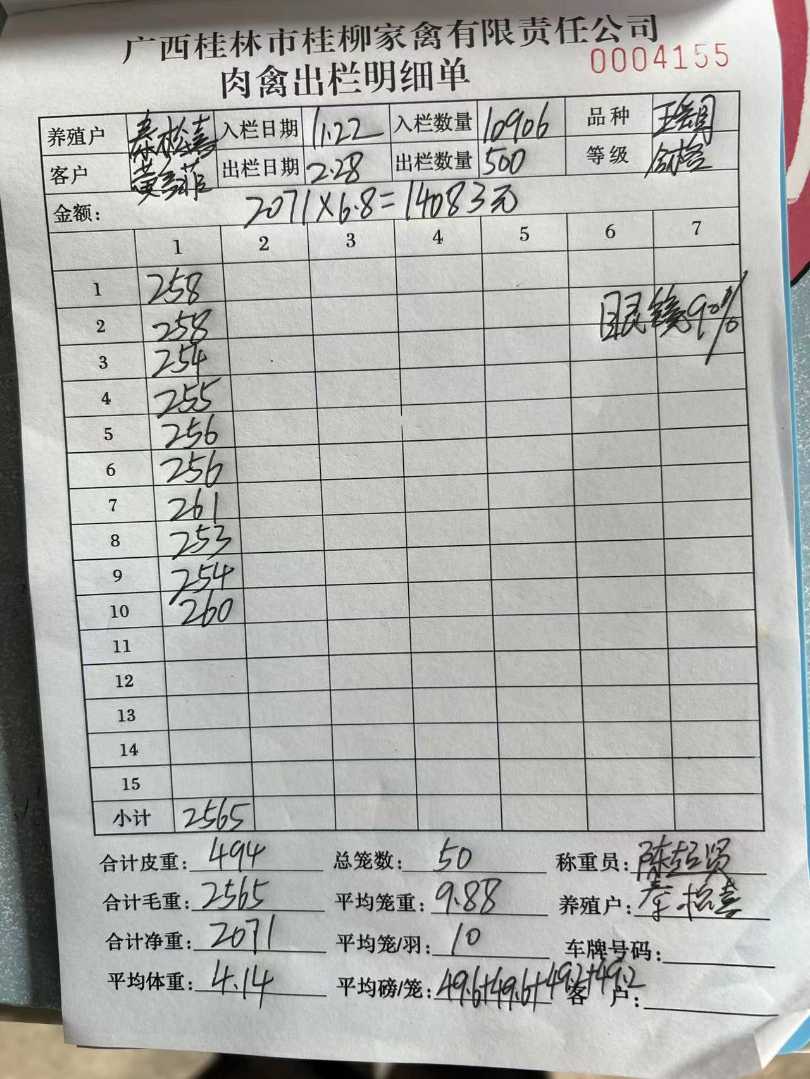 广西桂林市桂柳家禽有限责任公司
肉禽出栏明细单 0004155
养殖户 秦松喜 入栏日期 11.22 入栏数量 10906 品种
客户 出栏日期 2.28 出栏数量 500 等级 合格
金额: 2071×6.8=14083元
1 2 3 4 5 6 7
1 258
2 258 90%
3 254
4 255
5 256
6 256
7 261
8 253
9 254
10 260
11
12
13
14
15
小计 2565
合计皮重: 494 总笼数: 50 称重员: 陈超贤
合计毛重: 2565 平均笼重: 9.88 养殖户: 秦松喜
合计净重: 2071 平均笼/羽: 10 车牌号码:
平均体重: 4.14 平均磅/笼: 49.6+49.6+49.2+49.2 客户: